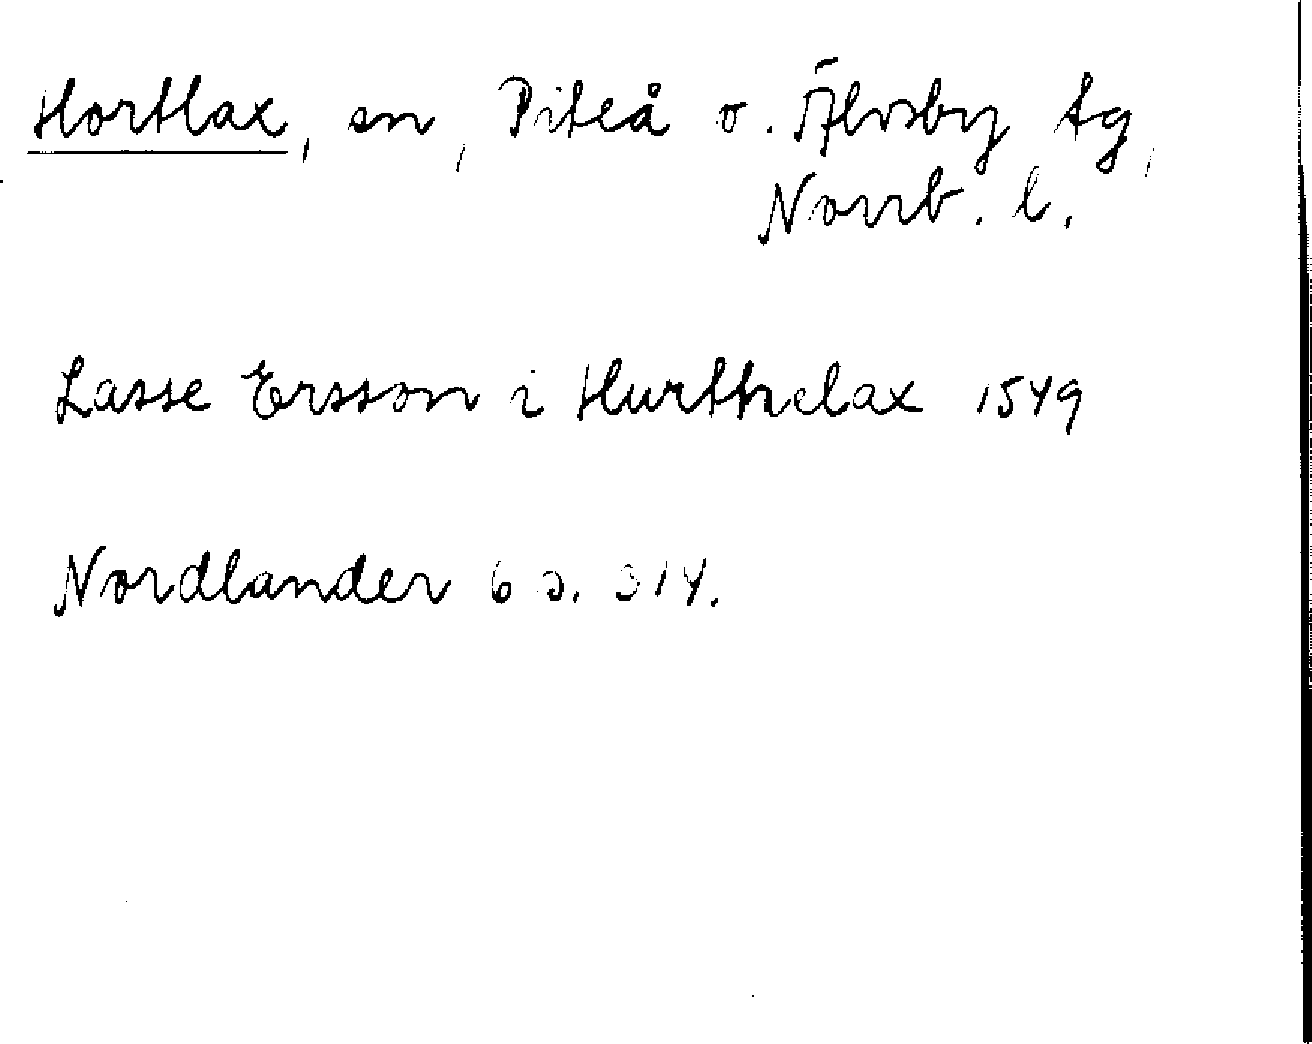 Hortlax, sn, Piteå o. Älvsby tg,
Norrb. l.
Lasse Ersson i Hurtthelax 1549
Nordlander 6 s. 314.